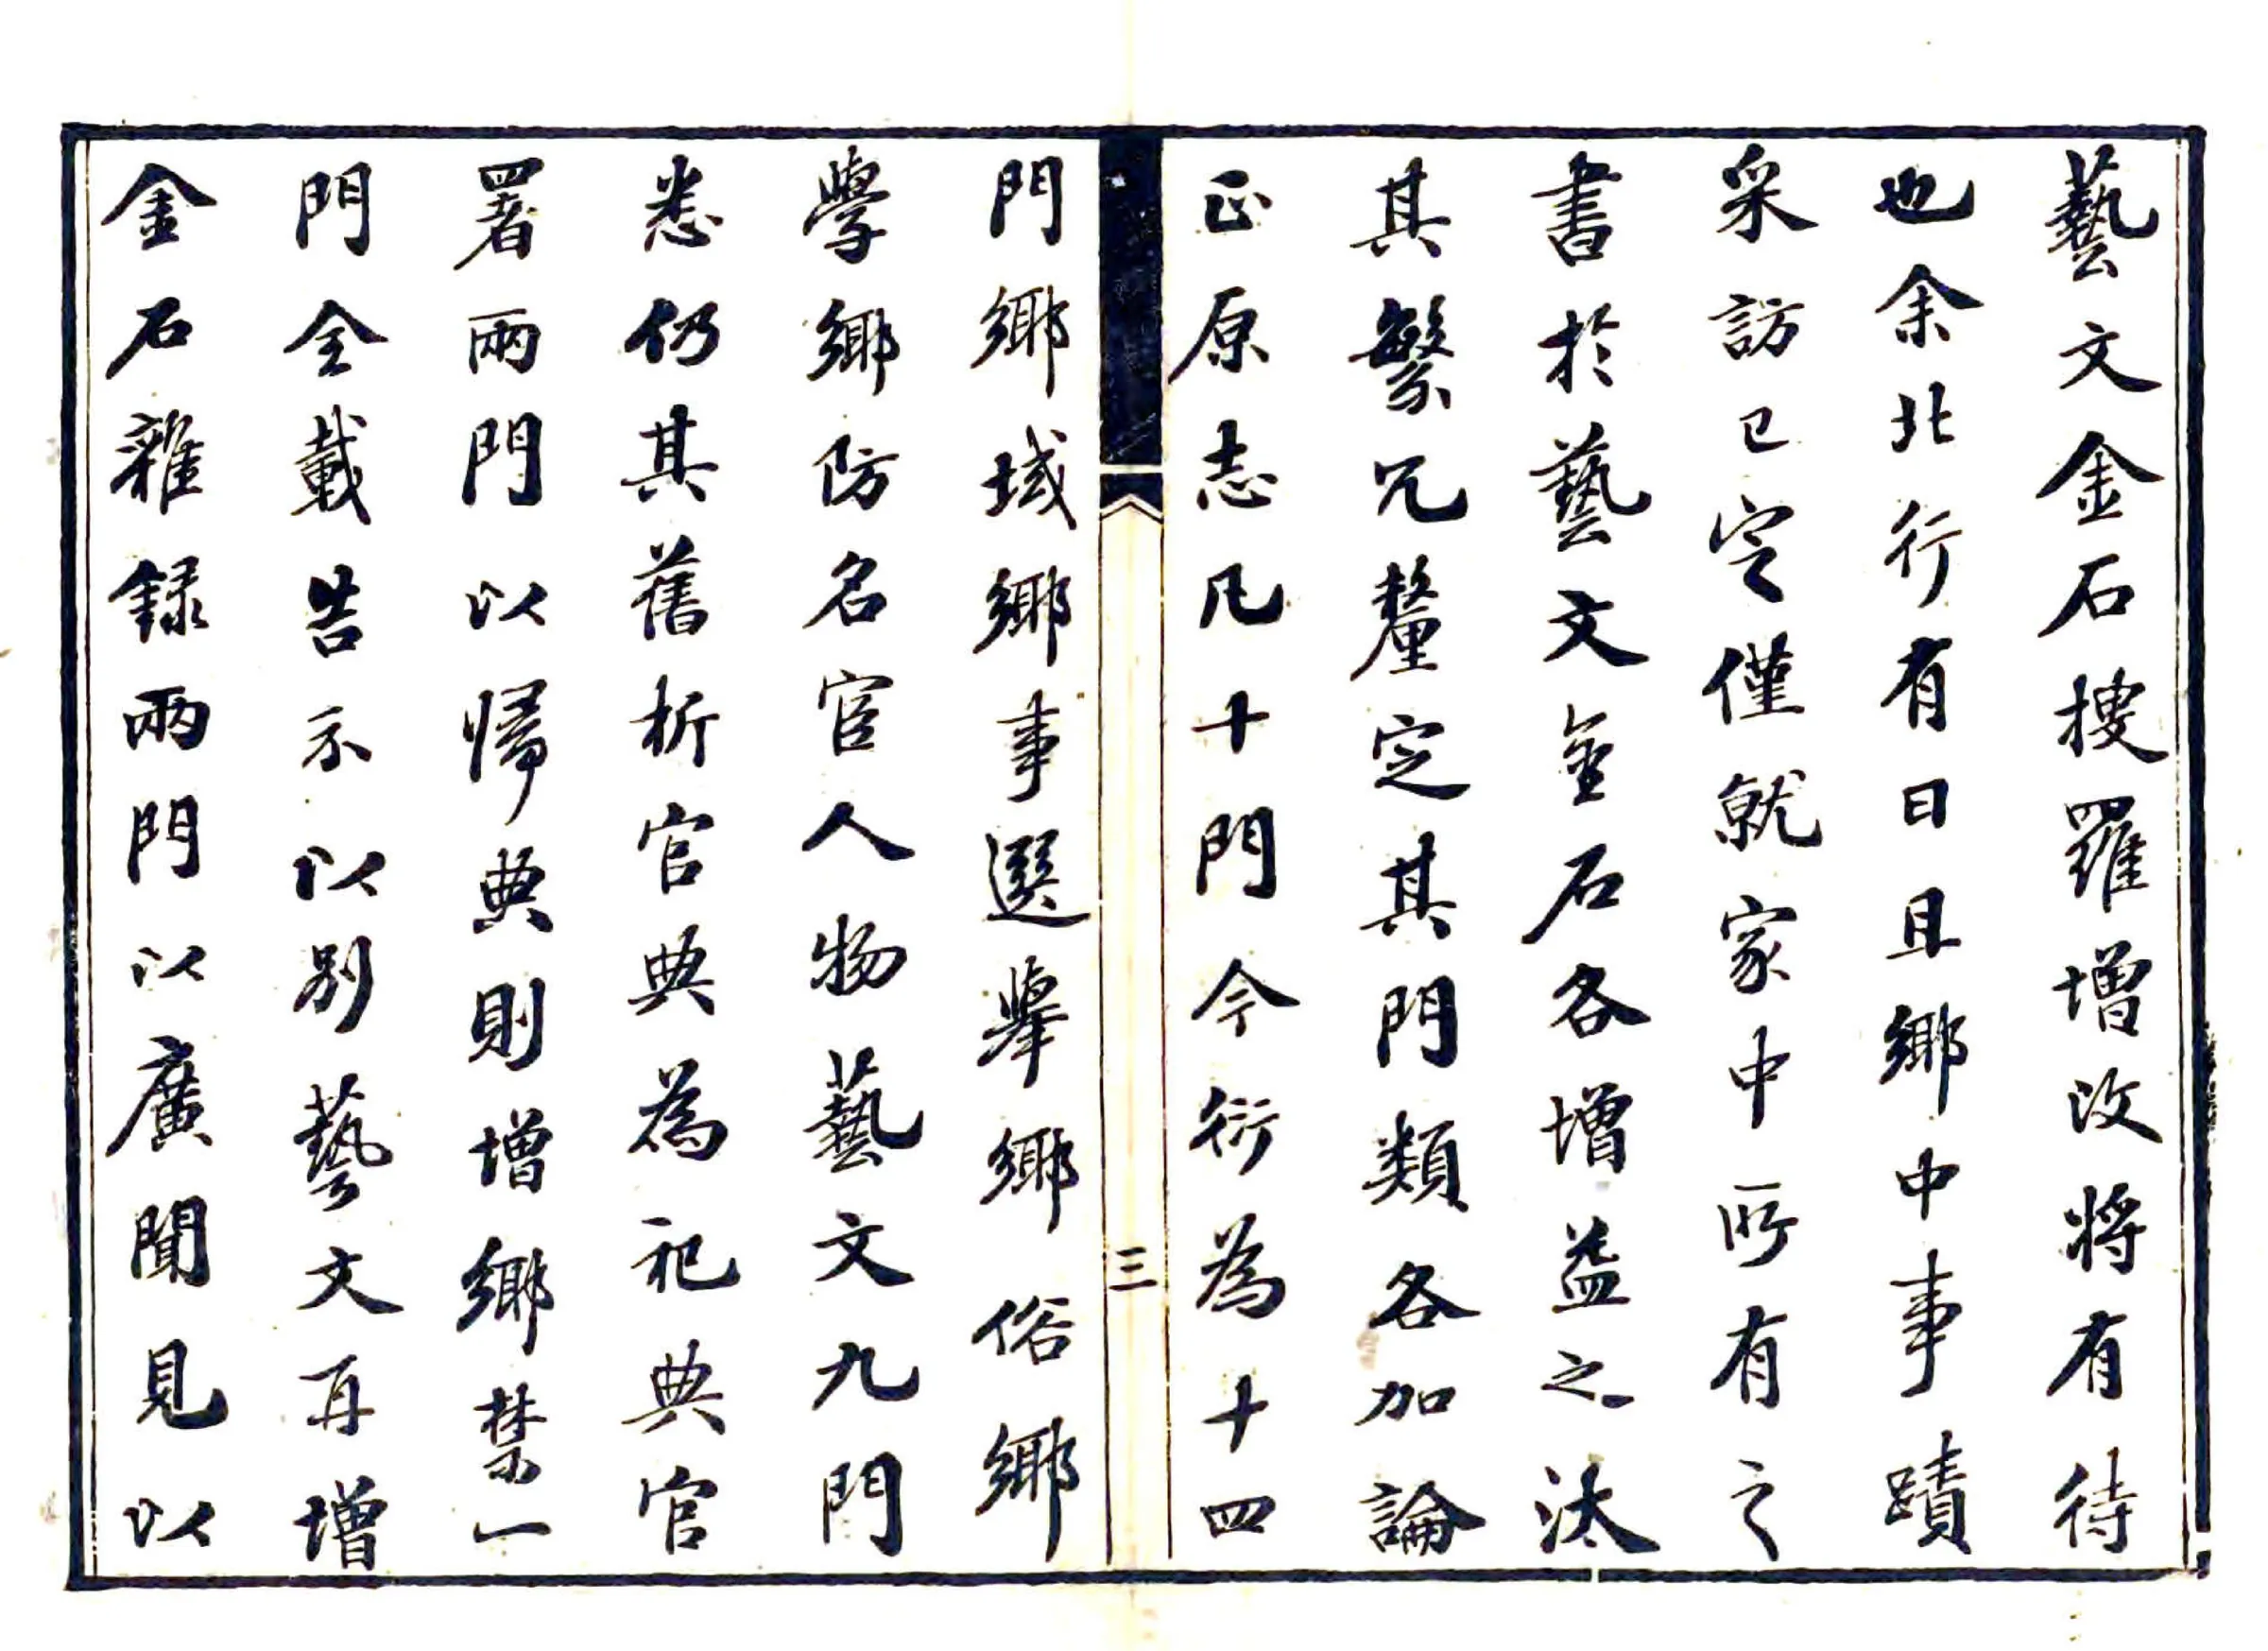 藝文金石搜羅增改將有待
也余北行有日且鄉中事蹟
采訪已定僅就家中所有之
書於藝文金石各增益之汰
其繁冗釐定其門類各加論
正原志凡十門今衍為十四
三
門鄉域鄉事選舉鄉俗鄉
學鄉防名宦人物藝文九門
悉仍其舊析官典為祀典官
署兩門以歸典則增鄉禁一
門全載告示以別藝文再增
金石雜録兩門以廣聞見以